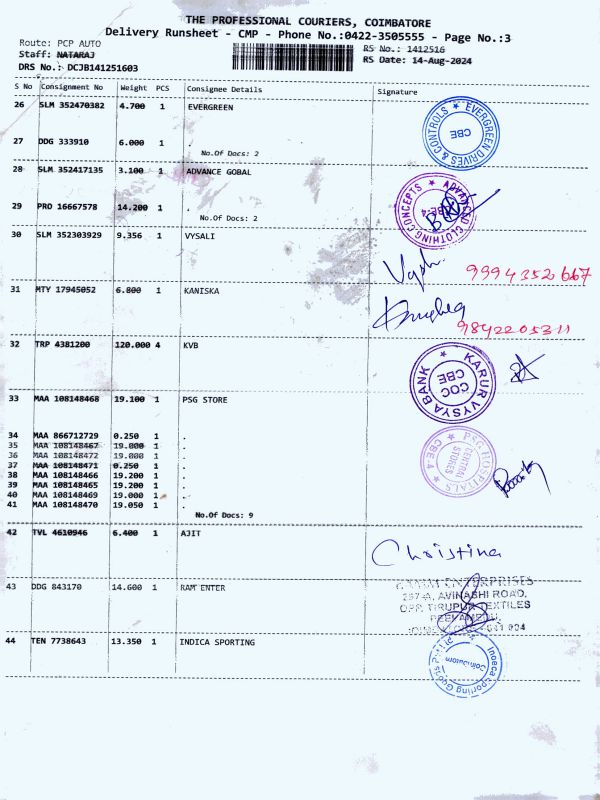 THE PROFESSIONAL COURIERS, COIMBATORE
Delivery Runsheet - CMP - Phone No.:0422-3505555 - Page No.:3
Route: PCP AUTO
RS No.: 1412516
Staff: NATARAJ
RS Date: 14-Aug-2024
DRS No.: DCJB141251603
S No Consignment No Weight PCS Consignee Details Signature
26 SLM 352470382 4.700 1 EVERGREEN
EVERGREEN DRIVES & CONTROLS
CBE
27 DDG 333910 6.000 1 .
No.Of Docs: 2
28 SLM 352417135 3.100 1 ADVANCE GOBAL
ADVANCED CLOTHING CONCEPTS
CBE-4
29 PRO 16667578 14.200 1 .
No.Of Docs: 2
30 SLM 352303929 9.356 1 VYSALI
9994352667
31 MTY 17945052 6.800 1 KANISKA
9842205311
32 TRP 4381200 120.000 4 KVB
KARUR VYSYA BANK
COC
CBE
33 MAA 108148468 19.100 1 PSG STORE
34 MAA 866712729 0.250 1 .
35 MAA 108148467 19.000 1 .
36 MAA 108148472 19.000 1 .
37 MAA 108148471 0.250 1 .
38 MAA 108148466 19.200 1 .
39 MAA 108148465 19.200 1 .
40 MAA 108148469 19.000 1 .
41 MAA 108148470 19.050 1 .
PSG HOSPITALS
CENTRAL
STORES
CBE-4
No.Of Docs: 9
42 TVL 4610946 6.400 1 AJIT
Christina
43 DDG 843170 14.600 1 RAM ENTER
ENTERPRISES
257-A, AVINASHI ROAD,
OPP. TIRUPUR TEXTILES
PEELAMEDU,
44 TEN 7738643 13.350 1 INDICA SPORTING
Coimbatore